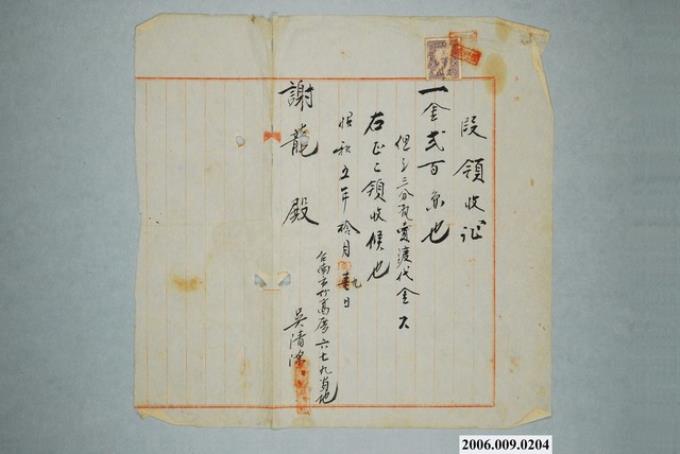 段領收证
一金弍百 也
但シ三分 賣渡代金 
右正ニ領收候也
昭和五年拾月 九日
台南市 六七九番地
吳清
謝龍殿
2006.009.0204